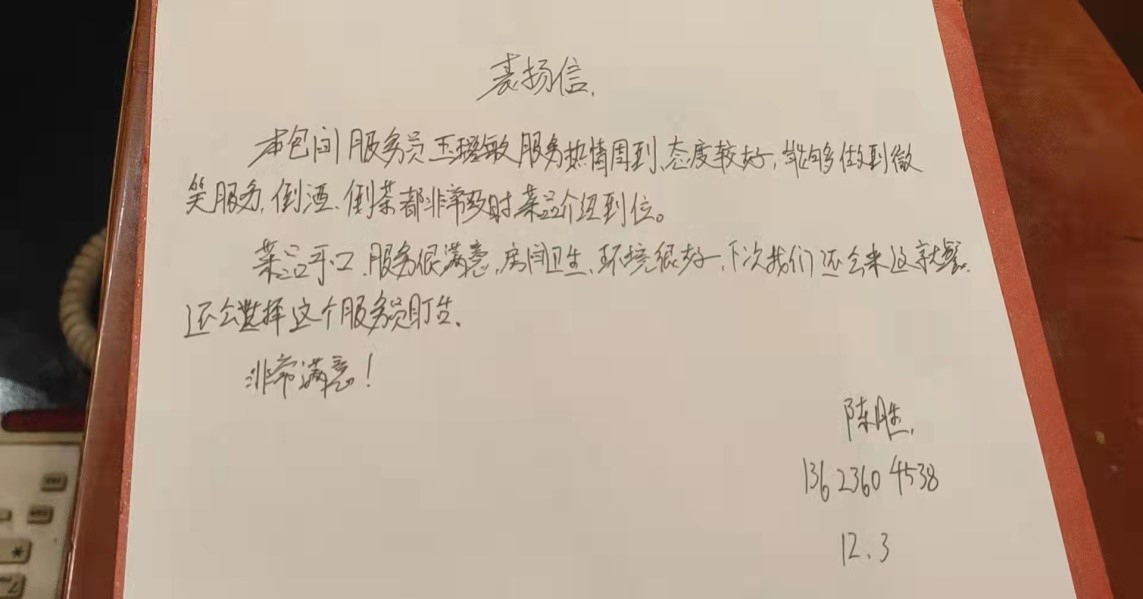 表扬信.
本包间服务员王瑶敏服务热情周到,态度较好,能够做到微
笑服务,倒酒、倒茶都非常及时菜品介绍到位。
菜品可口,服务很满意,房间卫生,环境很好,下次我们还会来这就餐.
还会选择这个服务员盯台.
非常满意!
陈胜.
136 2360 4538
12.3